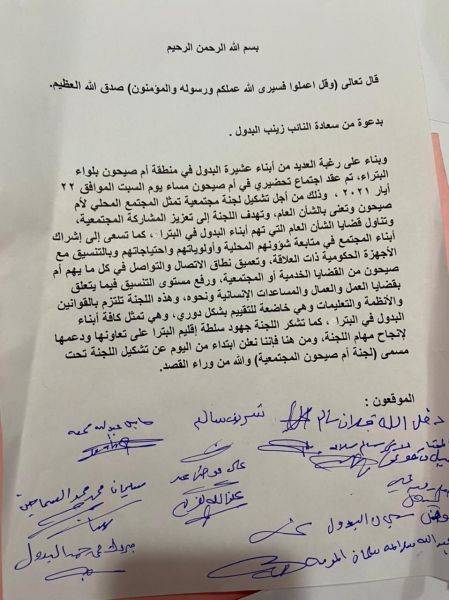 بسم الله الرحمن الرحيم
قال تعالى (وقل اعملوا فسيرى الله عملكم ورسوله والمؤمنون) صدق الله العظيم.
بدعوة من سعادة النائب زينب البدول .
وبناء على رغبة العديد من أبناء عشيرة البدول في منطقة أم صيحون بلواء
البتراء، تم عقد إجتماع تحضيري في أم صيحون مساء يوم السبت الموافق ٢٢
أيار ٢٠٢١ ، وذلك من أجل تشكيل لجنة مجتمعية تمثل المجتمع المحلي لأم
صيحون وتعنى بالشأن العام، وتهدف اللجنة إلى تعزيز المشاركة المجتمعية،
وتناول قضايا الشأن العام التي تهم أبناء البدول في البترا ، كما تسعى إلى إشراك
أبناء المجتمع في متابعة شؤونهم المحلية وأولوياتهم واحتياجاتهم وبالتنسيق مع
الأجهزة الحكومية ذات العلاقة، وتعميق نطاق الاتصال والتواصل في كل ما يهم أم
صيحون من القضايا الخدمية أو المجتمعية، ورفع مستوى التنسيق فيما يتعلق
بقضايا العمل والعمال والمساعدات الإنسانية ونحوه، وهذه اللجنة تلتزم بالقوانين
والأنظمة والتعليمات وهي خاضعة للتقييم بشكل دوري، وهي تمثل كافة أبناء
البدول في البترا ، كما تشكر اللجنة جهود سلطة إقليم البترا على تعاونها ودعمها
لإنجاح مهام اللجنة، ومن هنا فإننا نعلن ابتداء من اليوم عن تشكيل اللجنة تحت
مسمى (لجنة أم صيحون المجتمعية) والله من وراء القصد.
الموقعون :
دخل الله قبلان سالم
شريف سالم
سليمان محمد حمد السماحين
البدول